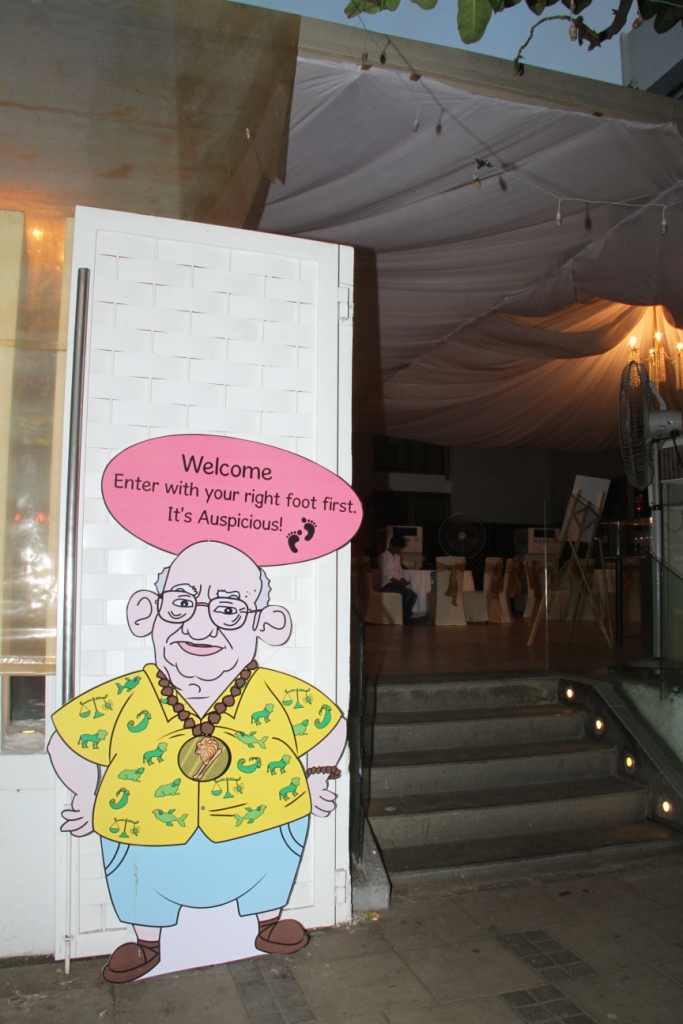 Welcome
Enter with your right foot first.
It's Auspicious!